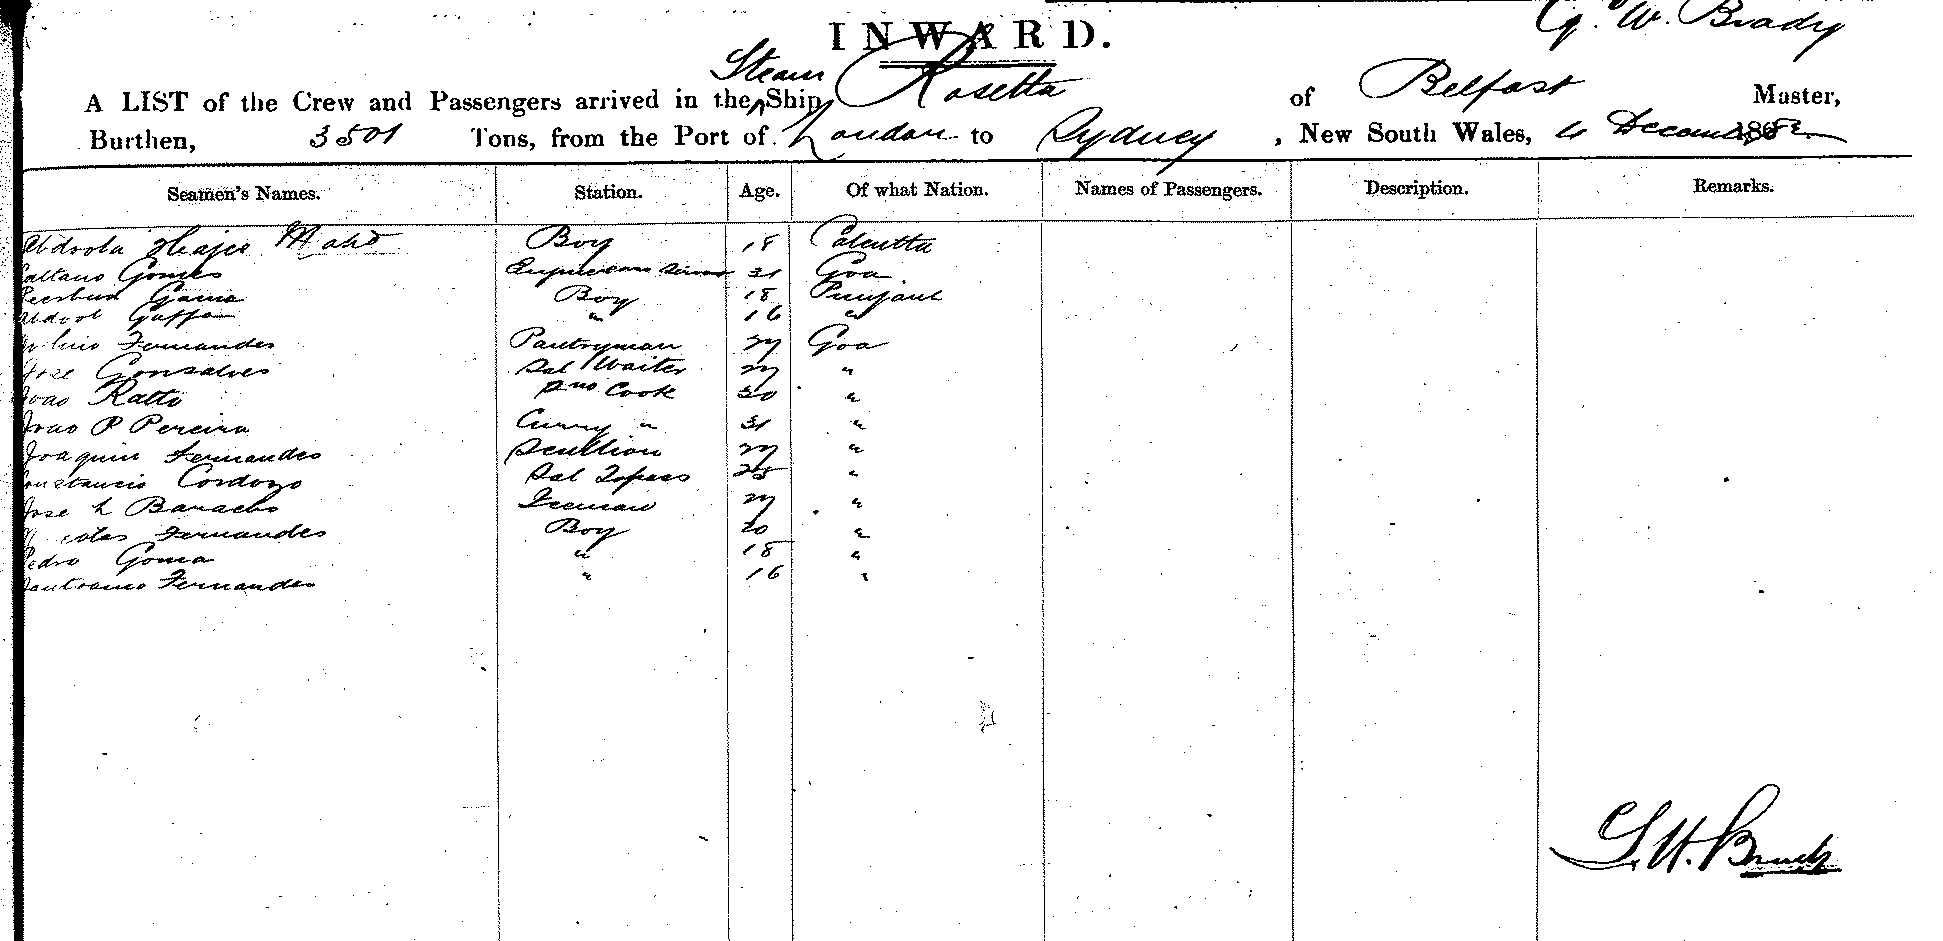 INWARD.
G. W. Brady
A LIST of the Crew and Passengers arrived in the Steam Ship Rosetta of Belfast Master,
Burthen, 3501 Tons, from the Port of London to Sydney, New South Wales, 4 December 1882
Seamen's Names. Station. Age. Of what Nation. Names of Passengers. Description. Remarks.
Abdoola Hajee Mahd Boy 18 Calcutta
Caltano Gomes 31 Goa
Gama Boy 18 Punjaub
Abdool Guffa " 16 "
Fernandes Pantryman 27 Goa
Jose Gonsalves Sal Waiter 27 "
Joao Ratto Cook 30 "
Joao P Pereira Curry " 31 "
Joaquin Fernandes Scullion 27 "
Constancio Cordozo Sal Topass 25 "
Jose L Baracho 27 "
Nicolas Fernandes Boy 20 "
Pedro Goma " 18 "
Fernandes " 16 "
G. W. Brady